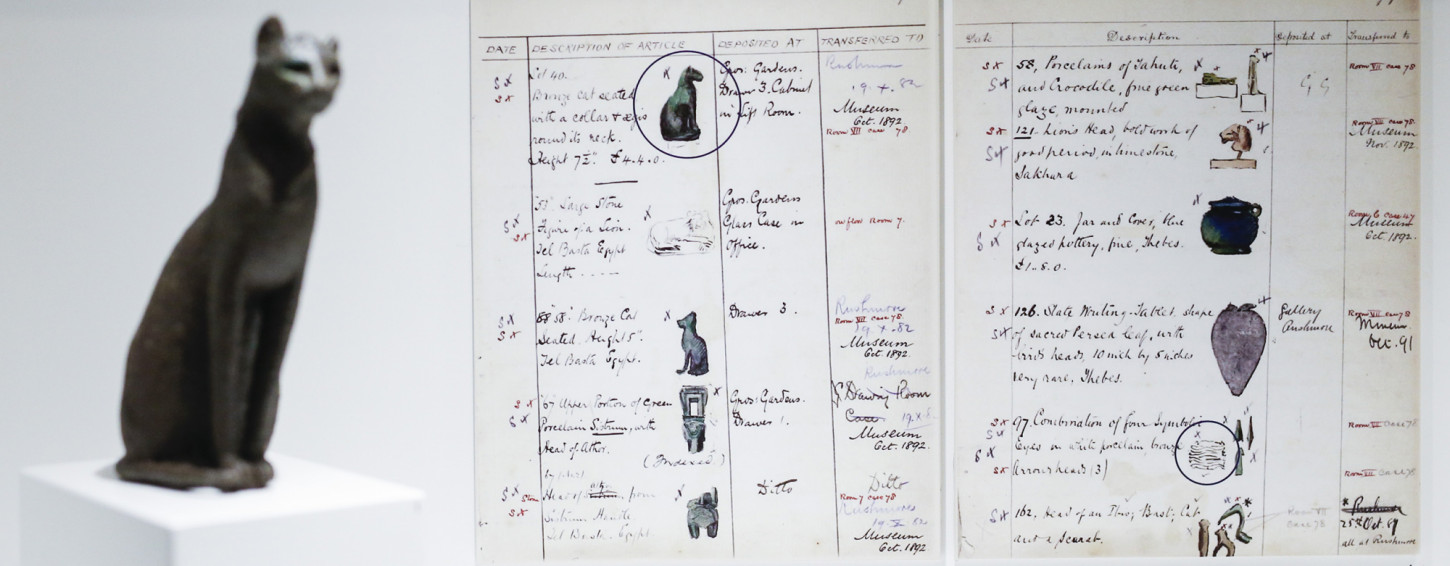 DATE DESCRIPTION OF ARTICLE DEPOSITED AT TRANSFERRED TO
Lot 40. Gros: Gardens. Rushmore
Bronze Cat seated Drawer 3. Cabinet 19.X.82
with a collar & ægis in Lift Room. Museum
round its neck. Oct. 1892
Height 7½". £4.4.0. Room VII case 78
53" Large Stone Gros: Gardens
Figure of a Lion. Glass Case in on floor Room 7.
Tel Basta Egypt Office.
Length
58. Bronze Cat Drawer 3. Rushmore
Seated, Height 5". Room VII case 78
Tel Basta Egypt. Museum
Oct. 1892
Rushmore
67 Upper Portion of Green Gros: Gardens. Drawing Room
Porcelain Sistrum, with Drawer 1.
Head of Athor. Museum
Oct. 1892.
(Indexed)
Head of from Ditto Ditto
Sistrum Handle Room 7 case 78
Tel Basta Egypt Rushmore
Museum
Oct. 1892
Date Description Deposited at Transferred to
58, Porcelains of Tahuti, G G Room VII case 78
and Crocodile, fine green
glaze, mounted
121. Lion's Head, bold work of Room VII case 78.
good period, in limestone, Museum
Sakhara Nov. 1892.
Lot 23. Jar and Cover, blue Room 6 case 47
glazed pottery, fine, Thebes. Museum
£1..8.0. Oct. 1892.
126. Slate Writing-Tablet, shape Gallery Room VII case 78
of sacred Persea leaf, with Rushmore Museum
bird's heads, 10 inch by 5 inches Oct. 91
very rare, Thebes.
97. Combination of four Symbolic Room VII case 78
Eyes on white porcelain, bronze
Arrowheads (3) Room VII case 78
162. Head of an Ibis, Bast, Cat Room VII Rushmore
and a Scarab. case 78 25th Oct. 89
all at Rushmore